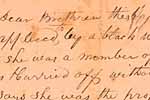 dear Brethren
applied by a black w
she was a member o
Harried off without
says she was the pro